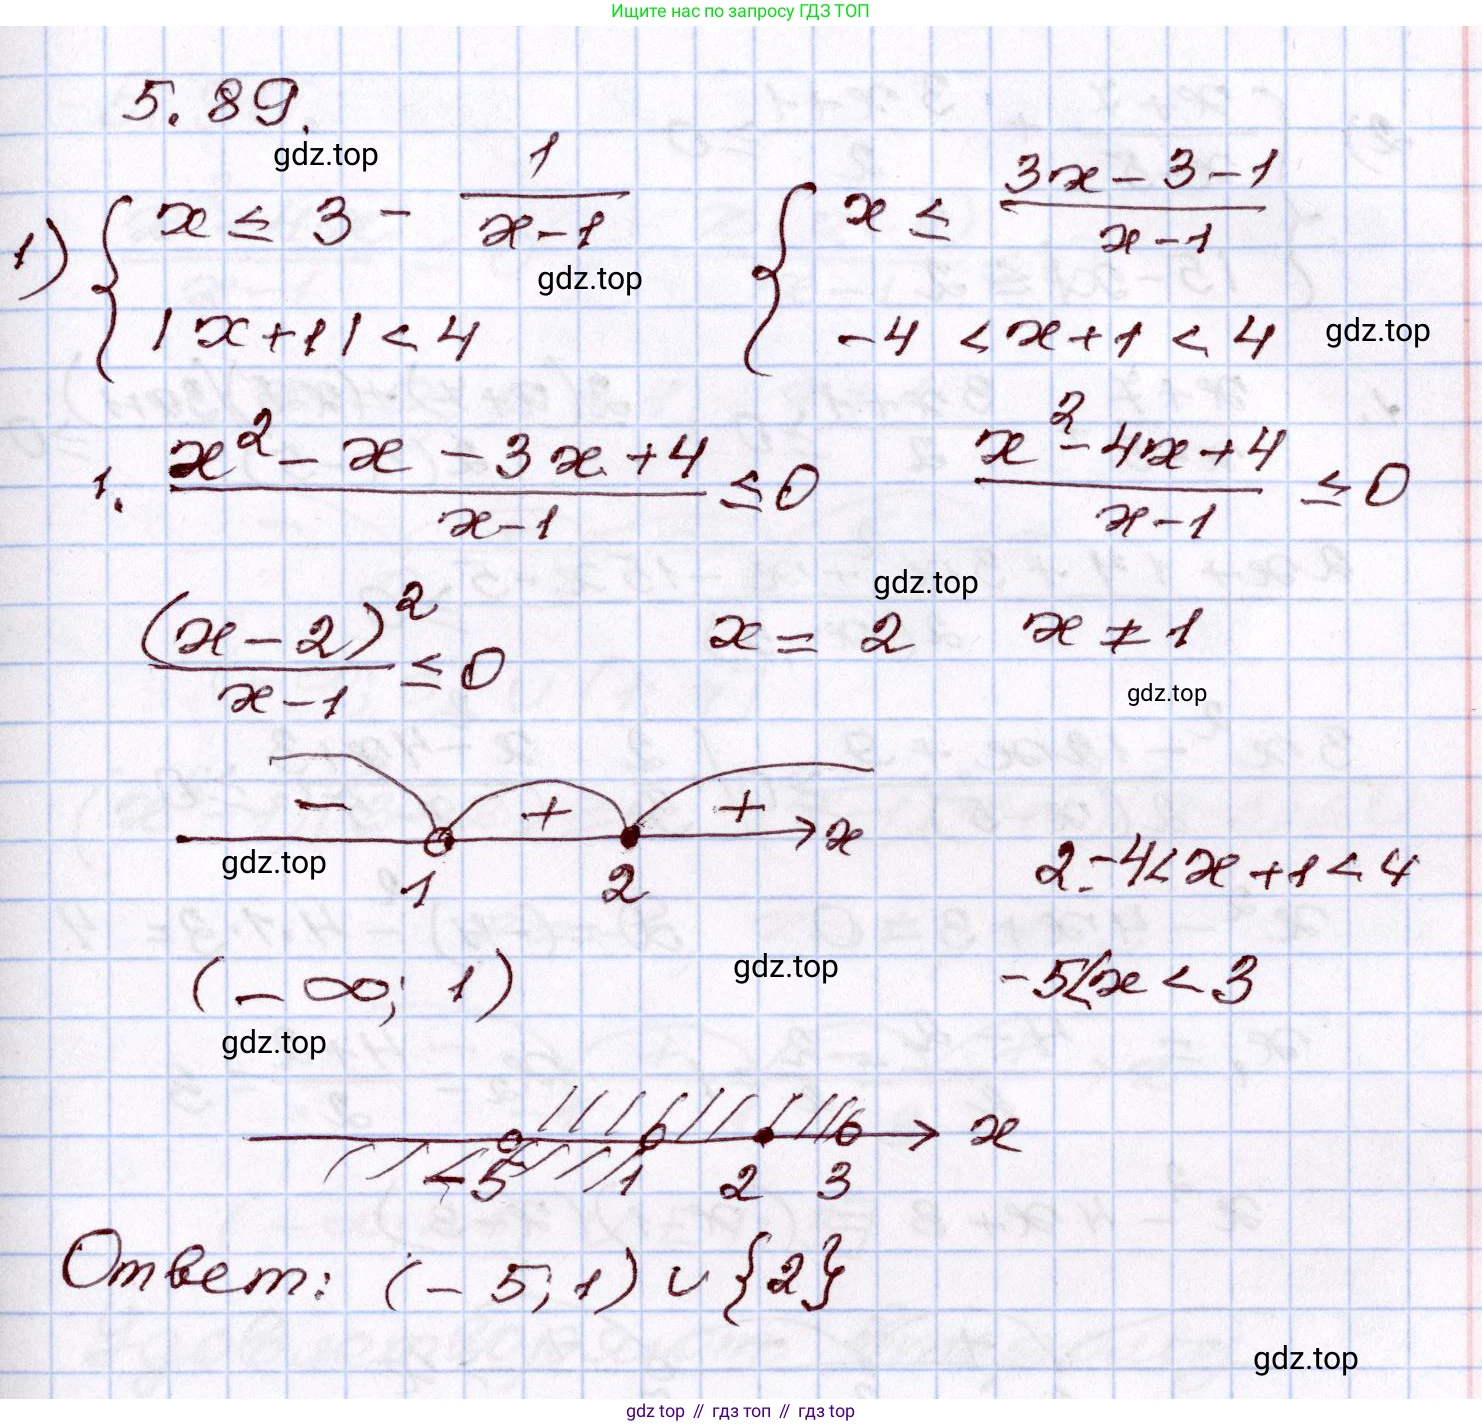 Ищите нас по запросу ГДЗ ТОП
5.89.
gdz.top
1) { x ≤ 3 - 1/(x-1) { x ≤ (3x-3-1)/(x-1)
gdz.top
|x+1| < 4 -4 < x+1 < 4
gdz.top
1. (x² - x - 3x + 4)/(x-1) ≤ 0 (x² - 4x + 4)/(x-1) ≤ 0
gdz.top
(x-2)²/(x-1) ≤ 0 x = 2 x ≠ 1
gdz.top
- + + x
gdz.top
1 2
2. -4 < x+1 < 4
(-∞; 1) gdz.top -5 < x < 3
gdz.top
x
-5 1 2 3
Ответ: (-5; 1) ∪ {2}
gdz.top
gdz top // гдз топ // gdz top